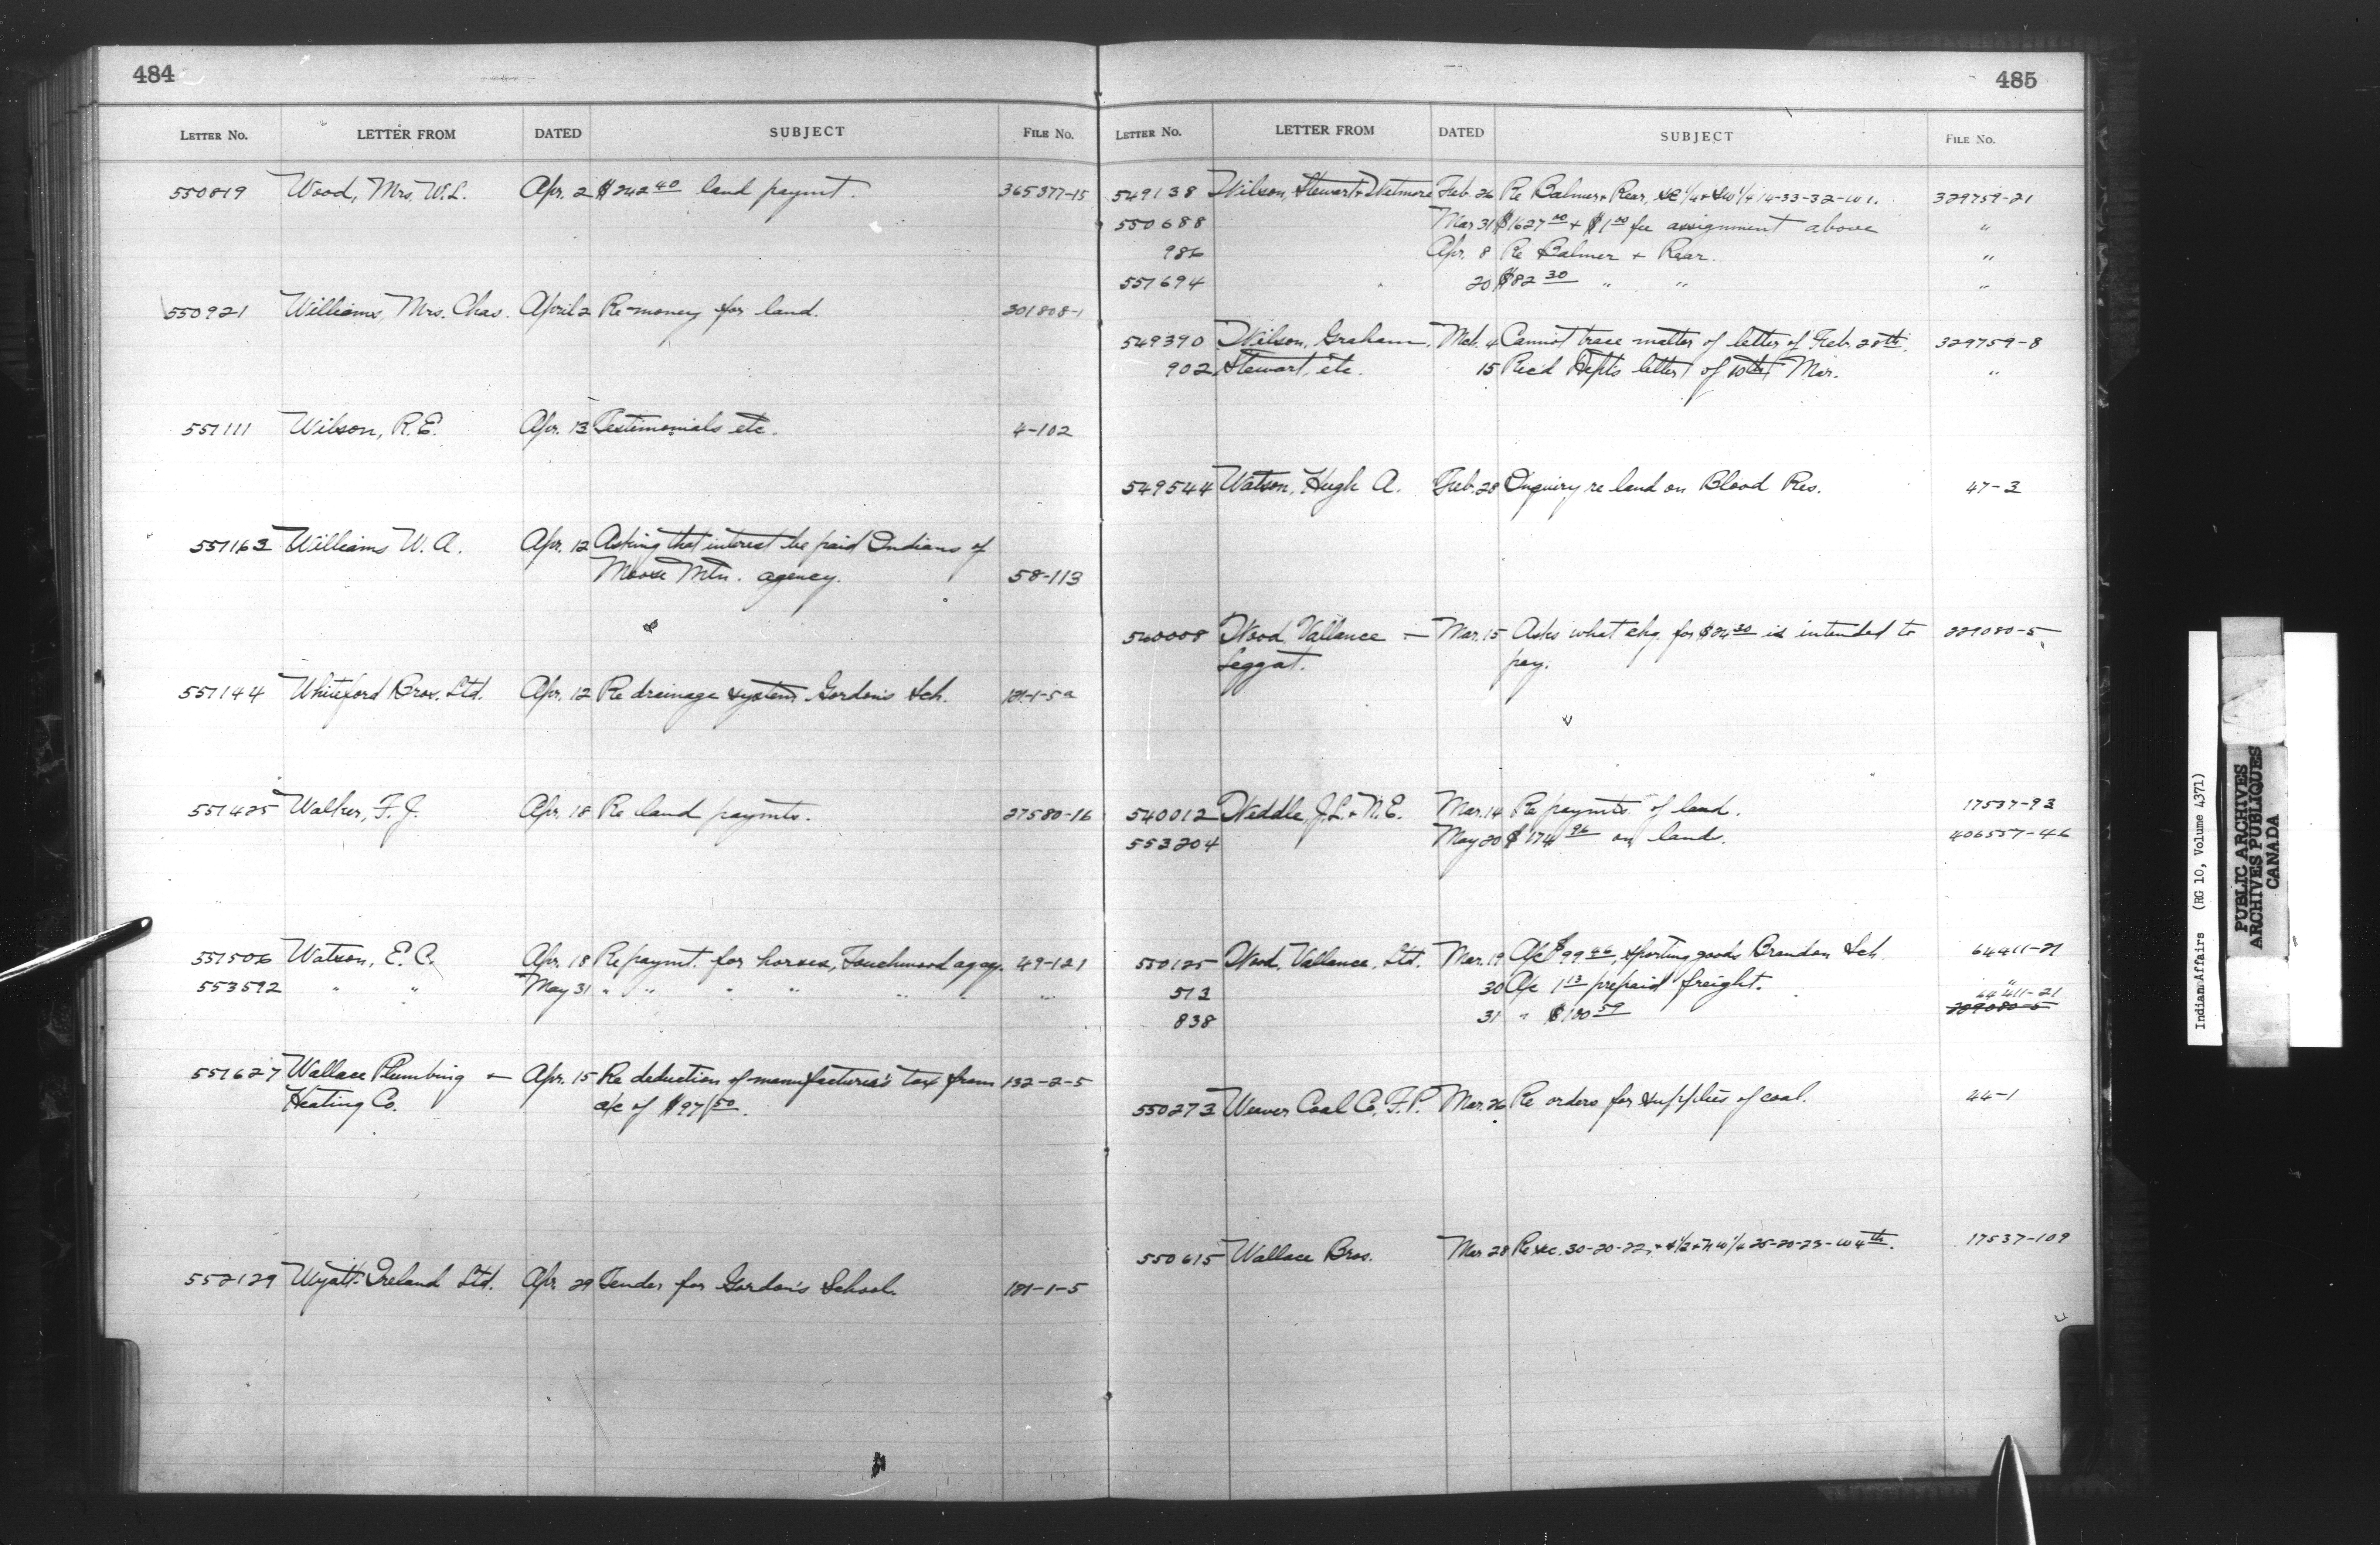 484
LETTER NO. LETTER FROM DATED SUBJECT FILE No.
550819 Wood, Mrs. W.L. Apr. 2 $242 40 land paymt. 365377-15
550921 Williams, Mrs. Chas. April 2 Re money for land. 301808-1
551111 Wilson, R.E. Apr. 13 Testimonials etc. 4-102
551163 Williams W. A. Apr. 12 Asking that interest be paid Indians of
Moose Mtn. agency. 58-113
551144 Whiteford Bros. Ltd. Apr. 12 Re drainage system Gordon's Sch. 181-1-5a
551425 Walker, F. J. Apr. 18 Re land paymts. 27580-16
551506 Watson, E. C. Apr. 18 Re paymt. for horses, Touchwood agcy. 49-121
553592 " " May 31 " " " " " " "
551627 Wallace Plumbing + Apr. 15 Re deduction of manufacturer's tax from 132-2-5
Heating Co. a/c of $971 50.
552129 Wyatt-Ireland Ltd. Apr. 29 Tender for Gordon's School. 181-1-5
485
LETTER NO. LETTER FROM DATED SUBJECT FILE No.
549138 Wilson, Stewart + Wetmore Feb. 26 Re Balmer + Rear, SE 1/4 + SW 1/4 14-33-32-W1. 329759-21
550688 Mar 31 $1627 00 + $1 00 fee assignment above "
986 Apr. 8 Re Balmer + Rear. "
551694 20 $82 30 " " "
549390 Wilson, Graham, Mch. 4 Cannot trace matter of letter of Feb. 28th. 329759-8
902 Stewart, etc. 15 Rec'd Dept's letter of 10th Mar. "
549544 Watson, Hugh A. Feb. 28 Inquiry re land on Blood Res. 47-3
540008 Wood Vallance + Mar. 15 Asks what chq. for $84 30 is intended to 229080-5
Leggat. pay.
540012 Weddle, J.L. + N.E. Mar. 14 Re paymts of land. 17537-93
553204 May 20 $174 96 on lands. 406557-46
550125 Wood, Vallance, Ltd. Mar. 19 A/c $99 46, sporting goods Brandon Sch. 64411-21
513 30 A/c 1 13 prepaid freight. "
838 31 " $100 59 64411-21
229080-5
550273 Weaver Coal Co, F.P. Mar. 26 Re orders for supplies of coal. 44-1
550615 Wallace Bros. Mar 28 Re sec. 30-20-22, + S 1/2 + NW 1/4 25-20-23-W 4th. 17537-109
Indian Affairs (RG 10, Volume 4371)
PUBLIC ARCHIVES
ARCHIVES PUBLIQUES
CANADA